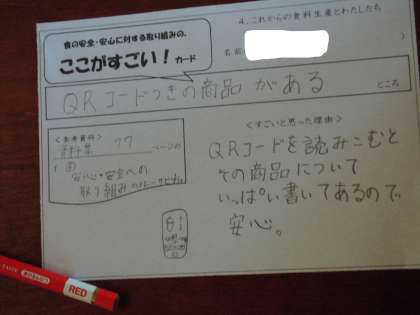 4. これからの食料生産とわたしたち
食の安全・安心に対する取り組みの、
ここがすごい！カード
名前
)
QRコードつきの商品がある
ところ
<参考資料>
資料集 77 ページの
<すごいと思った理由>
QRコードを読みこむと
その商品について
いっぱい書いてあるので
安心。
安心・安全への
取り組み
RED